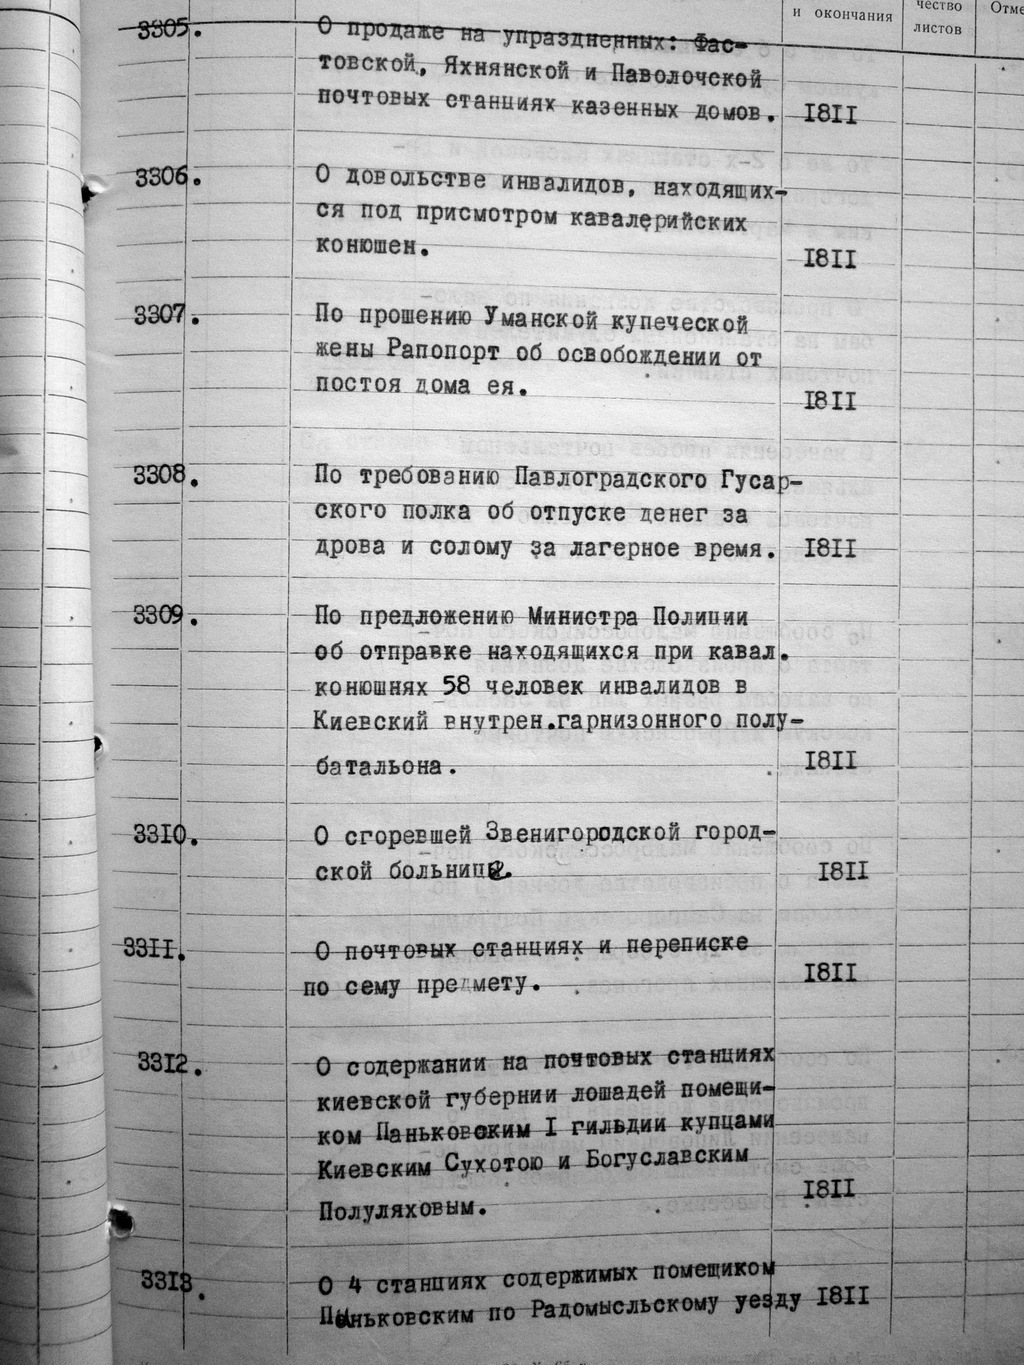 и окончания
чество
листов
Отме
3305. О продаже на упраздненных: Фас-
товской, Яхнянской и Паволочской
почтовых станциях казенных домов. I8II
3306. О довольстве инвалидов, находящих-
ся под присмотром кавалерийских
конюшен. I8II
3307. По прошению Уманской купеческой
жены Рапопорт об освобождении от
постоя дома ея. I8II
3308. По требованию Павлоградского Гусар-
ского полка об отпуске денег за
дрова и солому за лагерное время. I8II
3309. По предложению Министра Полиции
об отправке находящихся при кавал.
конюшнях 58 человек инвалидов в
Киевский внутрен.гарнизонного полу-
батальона. I8II
33I0. О сгоревшей Звенигородской город-
ской больнице. I8II
33II. О почтовых станциях и переписке
по сему предмету. I8II
33I2. О содержании на почтовых станциях
киевской губернии лошадей помещи-
ком Паньковским I гильдии купцами
Киевским Сухотою и Богуславским
Полуляховым. I8II
33I3. О 4 станциях содержимых помещиком
Паньковским по Радомысльскому уезду I8II